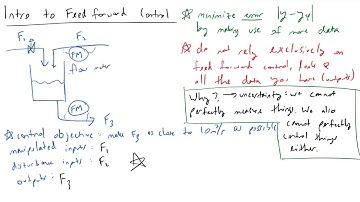 Intro to Feedforward Control
F₁
F₂
FM
flow meter
FM
F₃
control objective: make F₃ as close to 10 m³/s as possible
manipulated inputs: F₁
disturbance inputs: F₂
outputs: F₃
minimize error |y-yᵣ|
by making use of more data
do not rely exclusively on
feed forward control, pack &
all the data you have (outputs)
Why? → uncertainty: we cannot
perfectly measure things. We also
cannot perfectly
control things
either.